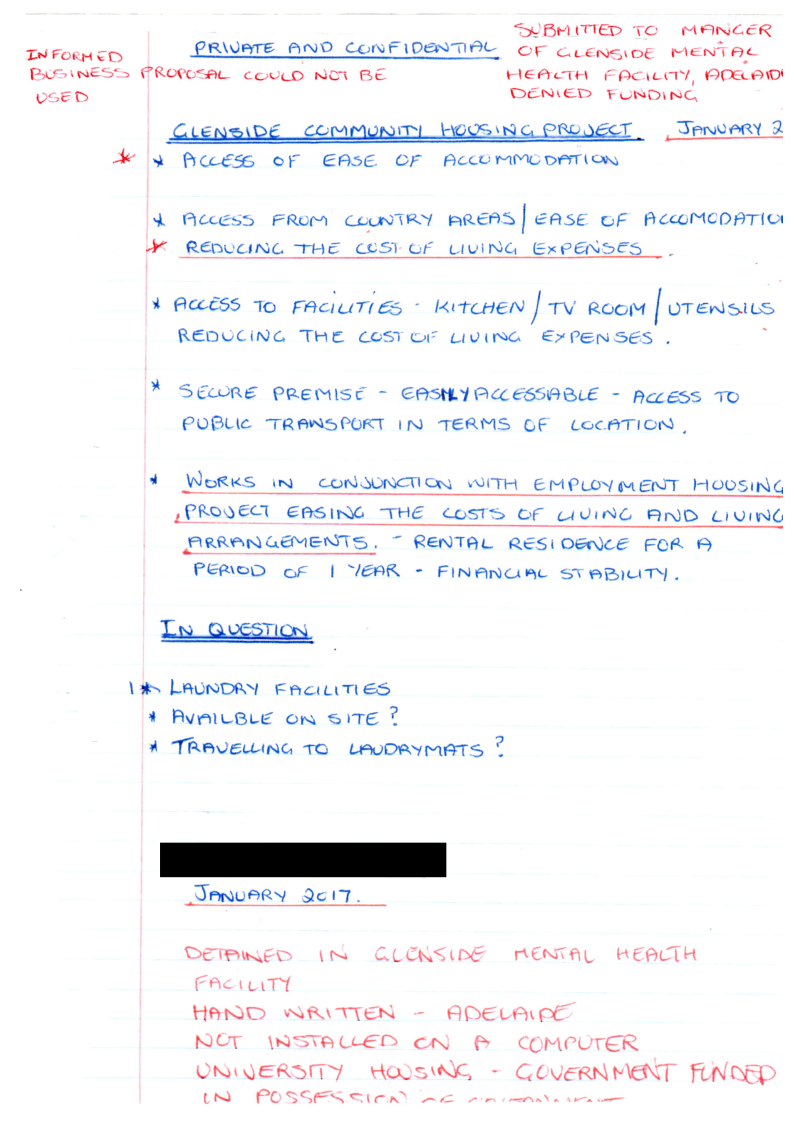 PRIVATE AND CONFIDENTIAL
SUBMITTED TO MANGER
OF GLENSIDE MENTAL
HEALTH FACILITY, ADELAID
DENIED FUNDING
INFORMED
BUSINESS PROPOSAL COULD NOT BE
USED
GLENSIDE COMMUNITY HOUSING PROJECT JANUARY 2
* * ACCESS OF EASE OF ACCOMMODATION
* ACCESS FROM COUNTRY AREAS/EASE OF ACCOMODATIO
* REDUCING THE COST OF LIVING EXPENSES.
* ACCESS TO FACILITIES - KITCHEN/TV ROOM/UTENSILS
REDUCING THE COST OF LIVING EXPENSES.
* SECURE PREMISE - EASILY ACCESSIABLE - ACCESS TO
PUBLIC TRANSPORT IN TERMS OF LOCATION.
* WORKS IN CONJUNCTION WITH EMPLOYMENT HOUSING
PROJECT EASING THE COSTS OF LIVING AND LIVING
ARRANGEMENTS. - RENTAL RESIDENCE FOR A
PERIOD OF 1 YEAR - FINANCIAL STABILITY.
IN QUESTION
1 * LAUNDRY FACILITIES
* AVAILBLE ON SITE?
* TRAVELLING TO LAUDRYMATS?
JANUARY 2017.
DETAINED IN GLENSIDE MENTAL HEALTH
FACILITY
HAND WRITTEN - ADELAIDE
NOT INSTALLED ON A COMPUTER
UNIVERSITY HOUSING - GOVERNMENT FUNDED
IN POSSESSION OF